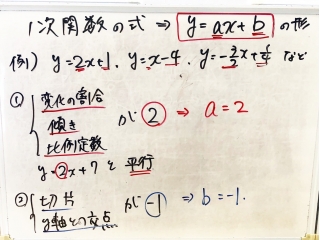 1次関数の式 ⇒ y=ax+b の形
例) y=2x+1, y=x-4, y=-3/2x+1/4 など
① 変化の割合
傾き
比例定数
が ② ⇒ a=2
y=2x+7 と 平行
② 切片
y軸との交点
が -1 ⇒ b=-1.